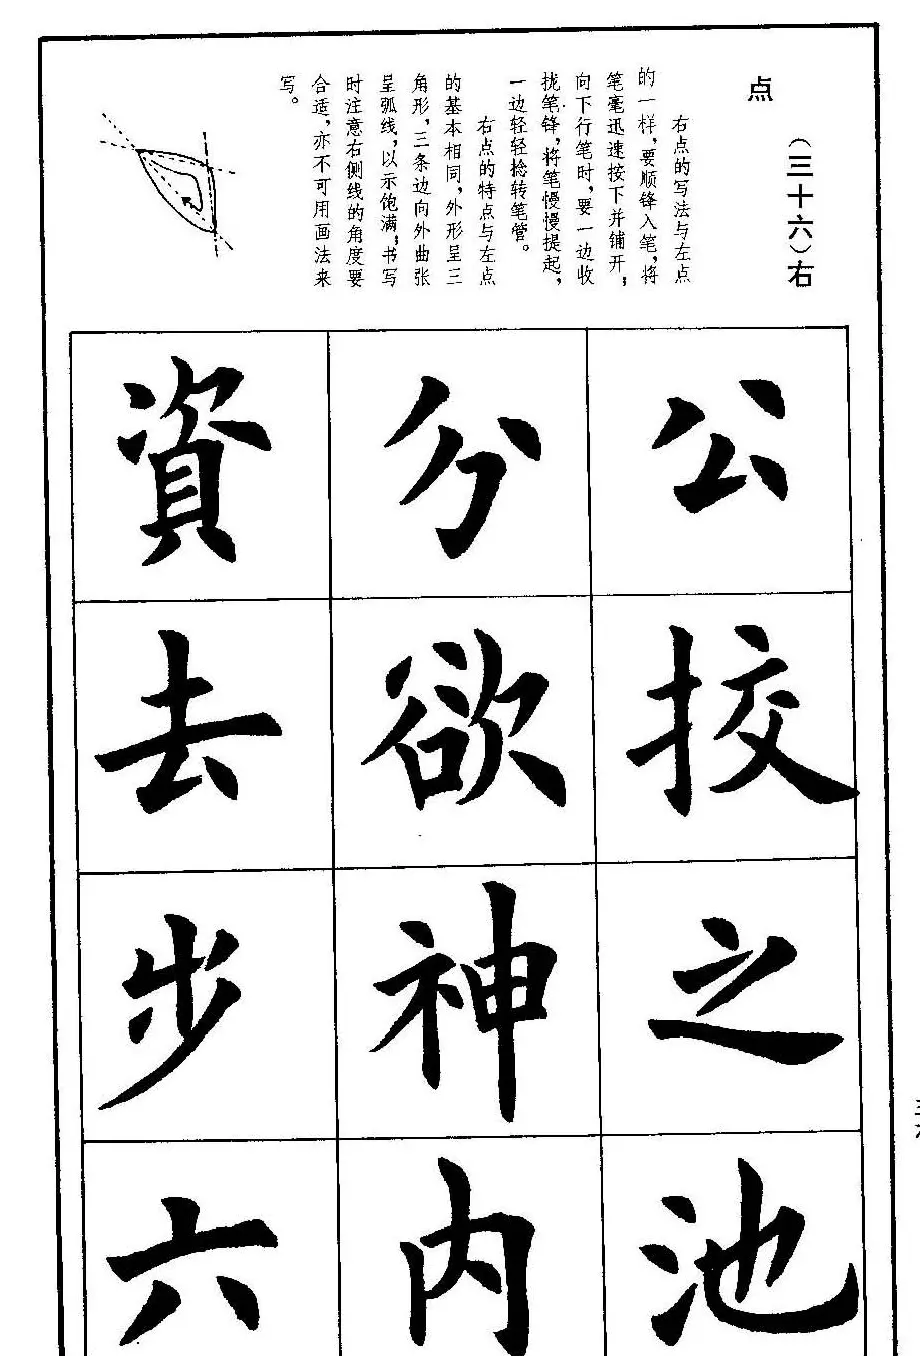 （三十六）右
点
右点的写法与左点
的一样，要顺锋入笔，将
笔毫迅速按下并铺开，
向下行笔时，要一边收
拢笔锋，将笔慢慢提起，
一边轻轻捻转笔管。
右点的特点与左点
的基本相同，外形呈三
角形，三条边向外曲张
呈弧线，以示饱满，书写
时注意右侧线的角度要
合适，亦不可用画法来
写。
公
挍
之
池
分
欲
神
内
資
去
步
六